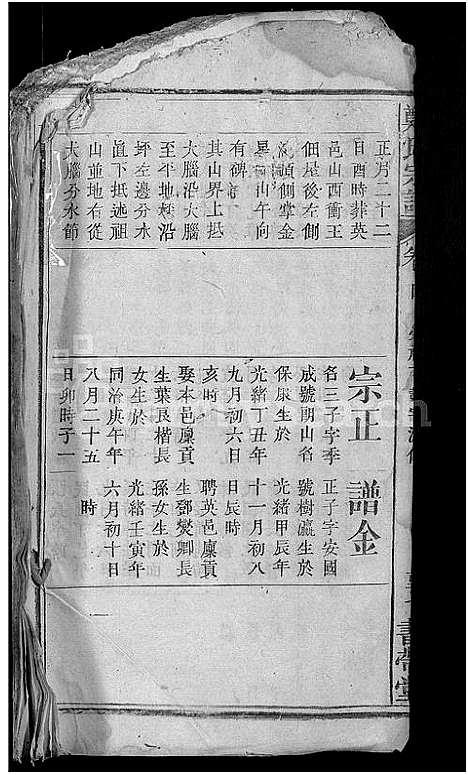 正月二十二
日酉時葬英
邑山西衝王
佃屋後左側
側掌金
山午向
有碑
其山界上抵
大腦沿大腦
至平地
坪左邊分水
直下抵遜祖
山並地右從
大腦分水節
宗正
名三子字季
成號朗山名
保康生於
光緒丁丑年
九月初六日
亥時
娶本邑廩貢
生葉艮楷長
女生於
同治庚午年
八月二十五
日卯時子一
譜金
正子字安國
號樹瀛生於
光緒甲辰年
十一月初八
日辰時
聘英邑廩貢
生鄧燮卿長
孫女生於
光緒壬寅年
六月初十日
時
書帶堂